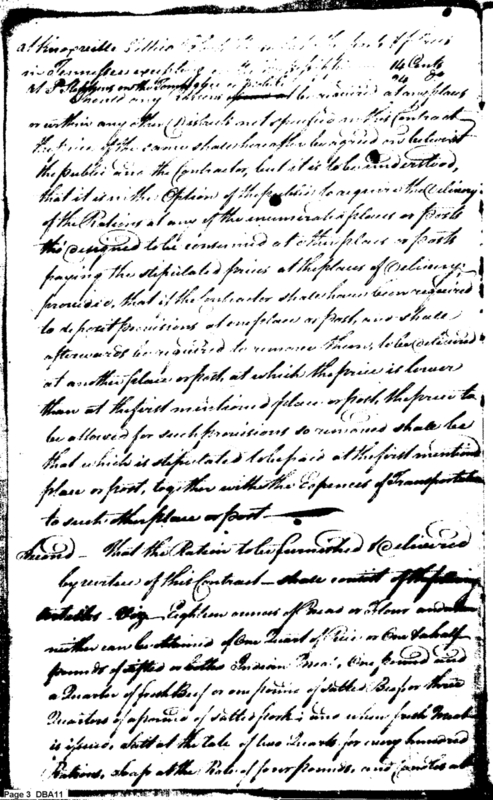 at Knoxville
in Tennessee 14 Cents
at St Stephens on the Tombigbee 24 do
Should any Rations be required at any places
or within any other Districts not specified in this Contract
the price of the same shall hereafter be agreed on betwixt
the public and the Contractor, but it is to be understood,
that it is in the Option of the public to require the delivery
of the Rations at any of the enumerated places or posts
tho' designed to be consumed at other places or posts
paying the stipulated prices at the places of delivery;
provided, that if the Contractor shall have been required
to deposit provisions at one place or post, and shall
afterwards be required to remove them, to be delivered
at another place or post, at which the price is lower
than at the first mentioned place or post, the price to
be allowed for such provisions so removed shall be
that which is stipulated to be paid at the first mentioned
place or post, together with the Expences of Transportation
to such other place or post
Second - That the Ration to be furnished & delivered
by virtue of this Contract - shall consist of the following
articles Viz Eighteen ounces of Bread or Flour and when
neither can be obtained of One Quart of Rice or One & half
pounds of sifted or bolted Indian Meal, One pound and
a Quarter of fresh Beef or one pound of salted Beef or three
Quarters of a pound of salted pork; and when fresh Meat
is issued, Salt at the rate of two Quarts for every hundred
Rations, Soap at the Rate of four pounds, and Candles at
Page 3 DBA11